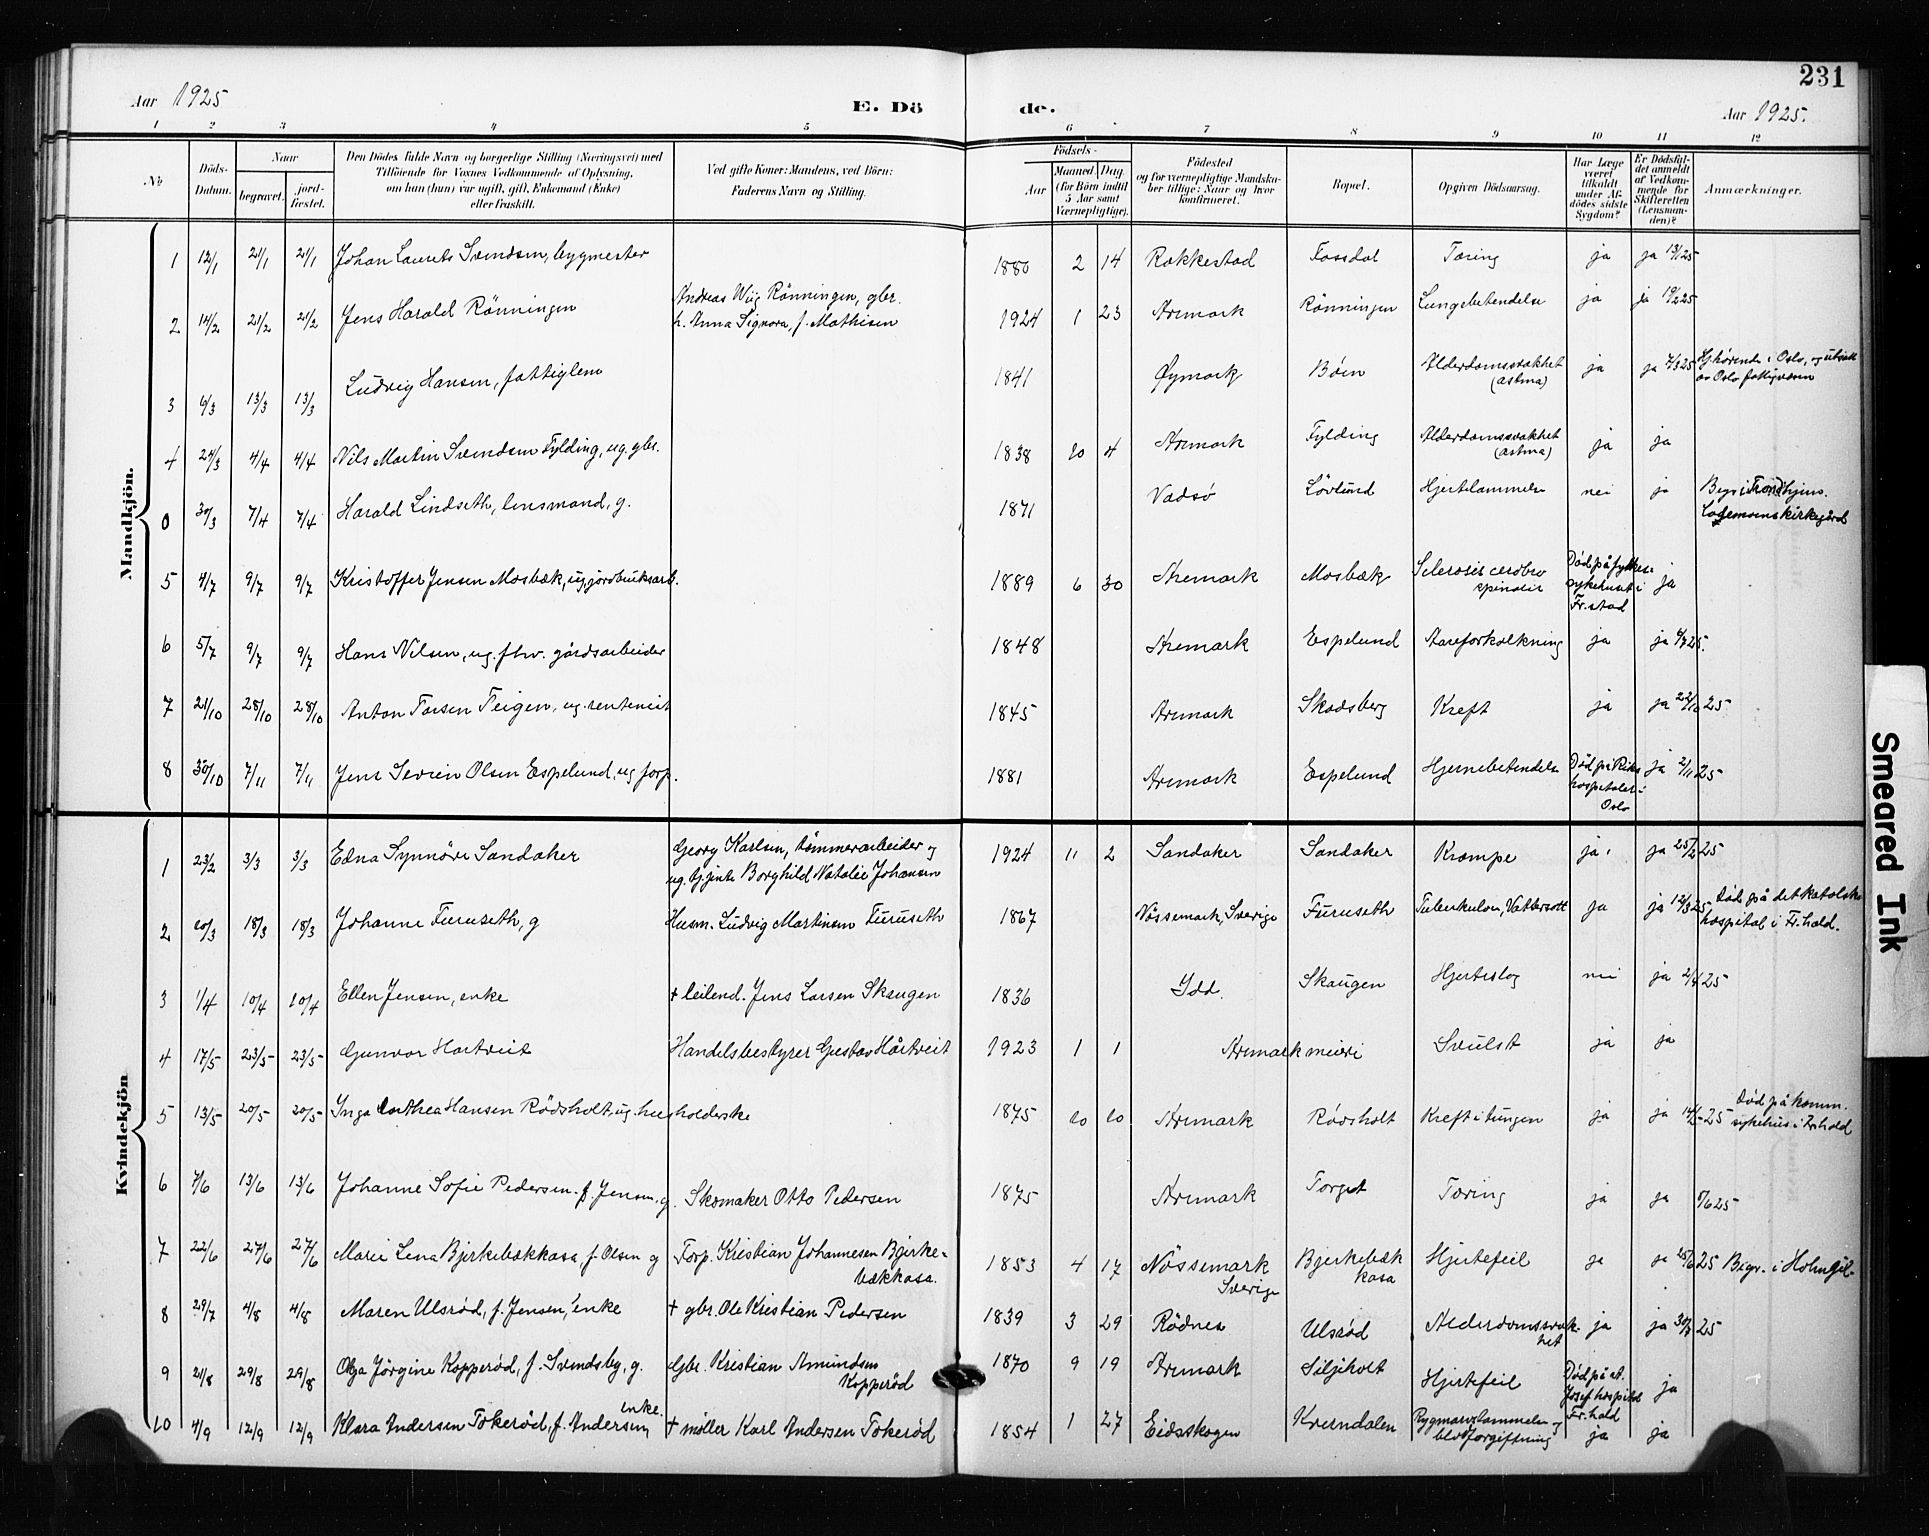 231
Aar 1925
E. Dö
de.
Aar 1925.
1 2 3 4 5 6 7 8 9 10 11 12
No
Döds-Datum.
Naar
begravet.
jord-fæstet.
Den Dödes fulde Navn og borgerlige Stilling (Næringsvei) med
Tilföiende for Voxnes Vedkommende af Oplysning,
om han (hun) var ugift, gift, Enkemand (Enke)
eller fraskilt.
Ved gifte Koner: Mandens, ved Börn:
Faderens Navn og Stilling.
Födsels-
Aar
Maaned. Dag.
(for Börn indtil
5 Aar samt
Værnepligtige).
Födested
og for værnepligtige Mandska-
ber tillige: Naar og hvor
konfirmeret.
Bopæl.
Opgiven Dödsaarsag.
Har Læge
været
tilkaldt
under Af-
dödes sidste
Sygdom?
Er Dödsfal-
det anmeldt
af Vedkom-
mende for
Skifteretten
(Lensman-
den)?
Anmærkninger.
Mandkjön.
1 12/1 21/1 21/1 Johan Laurits Svendsen, bygmester 1880 2 14 Rakkestad Fossdal Tæring ja ja 13/1 25
2 14/2 21/2 21/2 Jens Harald Rönningen Andreas Wiig Rönningen, gbr.
h. Anna Signora, f. Mathisen 1924 1 23 Aremark Rönningen Lungebetendelse ja ja 19/2 25
3 6/3 13/3 13/3 Ludvig Hansen, fattiglem 1841 Øymark Böen Alderdomssvakhet
(astma) ja ja 7/3 25 Hj.hörende i Oslo, og utsatt
av Oslo fattigvæsen
4 24/3 4/4 4/4 Nils Martin Svendsen Fylding, ug. gbr. 1838 10 4 Aremark Fylding Alderdomssvakhet
(astma) ja ja
0 30/3 7/4 7/4 Harald Lindseth, lensmand, g. 1871 Vadsö Lövlund Hjertelammelse nei ja Begr. i Trondhjem.
Lademoens kirkegård
5 4/7 9/7 9/7 Kristoffer Jensen Mosbæk, ug, jordbruksarb. 1889 6 30 Aremark Mosbæk Sclerosis cerebro
spinalis Död på fylkes-
sykehuset i
Fr.stad ja
6 5/7 9/7 9/7 Hans Nilsen, ug. fhv. gårdsarbeider 1848 Aremark Espelund Aareforkalkning ja ja 6/7 25.
7 21/10 28/10 28/10 Anton Larsen Teigen, ug. rentenist 1845 Aremark Skodsberg Kreft ja ja 22/10 25
8 30/10 7/11 7/11 Jens Severin Olsen Espelund, ug forp. 1881 Aremark Espelund Hjernebetendelse Död på Riks
hospitalet i
Oslo ja 2/11 25
Kvindekjön
1 23/2 3/3 3/3 Edna Synnöve Sandaker Georg Karlsen, tömmerarbeider og
ug. tj.jente Borghild Natalie Johansen 1924 11 2 Sandaker Sandaker Krampe ja ja 25/2 25
2 10/3 18/3 18/3 Johanne Furuseth, g Husm. Ludvig Martinsen Furuseth 1867 Nössemark, Sverige Furuseth Tuberkulose, Vattersott ja ja 12/3 25 Död på det katolske
hospital i Fr.hald.
3 1/4 10/4 10/4 Ellen Jensen, enke + leilend. Jens Larsen Skaugen 1836 Idd. Skaugen Hjerteslag nei ja 2/4 25
4 17/5 23/5 23/5 Gunvor Hartveit Handelsbestyrer Gustav Hårtveit 1923 1 1 Aremark meieri Svulst ja ja
5 13/5 20/5 20/5 Inga Dorthea Hansen Rödsholt, ug. husholderske 1875 10 10 Aremark Rödsholt Kreft i tungen ja ja 14/5 25 Död på komm.
sykehus i Fr.hald
6 7/6 13/6 13/6 Johanne Sofie Pedersen. f. Jensen, g. Skomaker Otto Pedersen 1875 Aremark Torget Tæring ja ja 8/6 25
7 22/6 27/6 27/6 Marie Lena Bjerkebækkasa, f. Olsen g Forp. Kristian Johannesen Bjerke-
bækkasa. 1853 4 17 Nössemark
Sverige Bjerkebæk
kasa Hjertefeil ja ja 25/6 25 Begr. i Holmgil.
8 29/7 4/8 4/8 Maren Ulsröd, f. Jensen, enke + gbr. Ole Kristian Pedersen 1839 3 29 Rödnes Ulsröd Alderdomssvak-
het ja ja 30/7 25
9 21/8 29/8 29/8 Olga Jörgine Kopperöd, f. Svendsby, g. Gbr. Kristian Amundsen
Kopperöd 1870 9 19 Aremark Siljeholt Hjertefeil Död på st.
Josef hospital
Fr.hald ja
10 4/9 12/9 12/9 Klara Andersen Tokeröd, f. Andersen, enke. + möller Karl Andersen Tokeröd 1854 1 27 Eidsskogen Kverndalen Rygmarvslammelse og
blodforgiftning ja ja
Smeared Ink